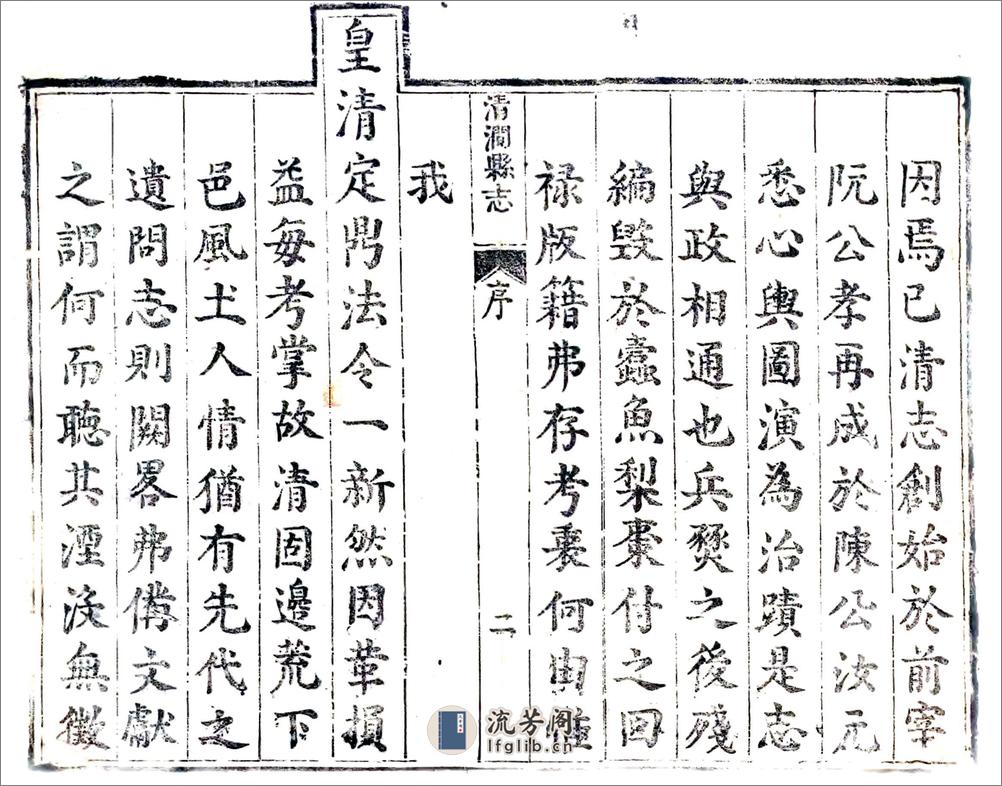 因焉已清志創始於前宰
阮公孝再成於陳公汝元
悉心輿圖演為治蹟是志
與政相通也兵燹之後殘
編毀於蠹魚梨棗付之回
祿版籍弗存考橐何由
清澗縣志
序
二
我
皇清定鼎法令一新然因革損
益每考掌故清固邊荒下
邑風土人情猶有先代之
遺問志則闕畧弗備文獻
之謂何而聽其湮沒無徵
流芳阁
lfglib.cn